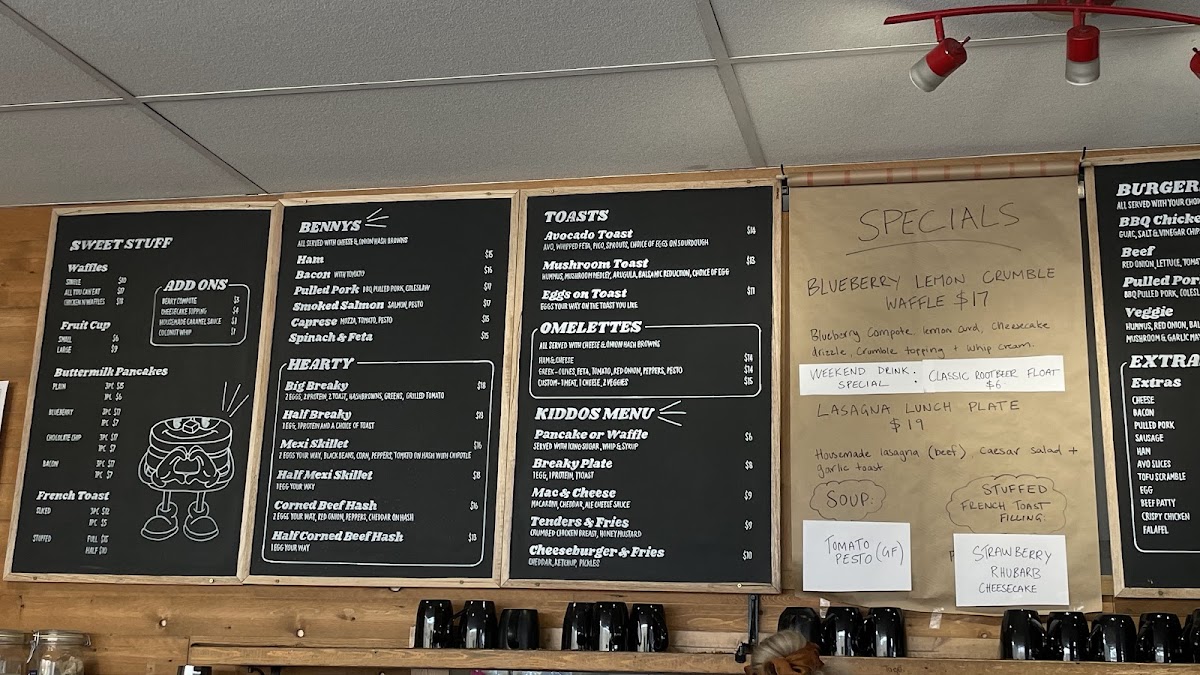 SWEET STUFF
Waffles
SINGLE $10
ALL YOU CAN EAT $17
CHICKEN N WAFFLES $18
ADD ONS
BERRY COMPOTE $3
CHEESECAKE TOPPING $4
HOUSEMADE CARAMEL SAUCE $1
COCONUT WHIP $1
Fruit Cup
SMALL $6
LARGE $9
Buttermilk Pancakes
PLAIN 3PC $15
1PC $6
BLUEBERRY 3PC $17
1PC $7
CHOCOLATE CHIP 3PC $17
1PC $7
BACON 3PC $17
1PC $7
French Toast
SLICED 3PC $12
1PC $5
STUFFED FULL $15
HALF $10
BENNYS
ALL SERVED WITH CHEESE & ONION HASH BROWNS
Ham $15
Bacon WITH TOMATO $16
Pulled Pork BBQ PULLED PORK, COLESLAW $17
Smoked Salmon SALMON, PESTO $17
Caprese MOZZA, TOMATO, PESTO $15
Spinach & Feta $15
HEARTY
Big Breaky $18
2 EGGS, 2 PROTEIN, 2 TOAST, HASHBROWNS, GREENS, GRILLED TOMATO
Half Breaky
1 EGG, 1 PROTEIN AND A CHOICE OF TOAST
Mexi Skillet $16
2 EGGS YOUR WAY, BLACK BEANS, CORN, PEPPERS, TOMATO ON HASH WITH CHIPOTLE
Half Mexi Skillet $13
1 EGG YOUR WAY
Corned Beef Hash $16
2 EGGS YOUR WAY, RED ONION, PEPPERS, CHEDDAR ON HASH
Half Corned Beef Hash $13
1 EGG YOUR WAY
TOASTS
Avocado Toast $14
AVO, WHIPPED FETA, PICO, SPROUTS, CHOICE OF EGGS ON SOURDOUGH
Mushroom Toast $13
HUMMUS, MUSHROOM MEDLEY, ARUGULA, BALSAMIC REDUCTION, CHOICE OF EGG
Eggs on Toast $11
EGGS YOUR WAY ON THE TOAST YOU LIKE
OMELETTES
ALL SERVED WITH CHEESE & ONION HASH BROWNS
HAM & CHEESE $14
GREEK - OLIVES, FETA, TOMATO, RED ONION, PEPPERS, PESTO $14
CUSTOM - 1 MEAT, 1 CHEESE, 2 VEGGIES $15
KIDDOS MENU
Pancake or Waffle $6
SERVED WITH ICING SUGAR, WHIP & SYRUP
Breaky Plate $8
1 EGG, 1 PROTEIN, 1 TOAST
Mac & Cheese $9
MACARONI, CHEDDAR, ALE CHEESE SAUCE
Tenders & Fries $9
CRUMBED CHICKEN BREAST, HONEY MUSTARD
Cheeseburger & Fries $10
CHEDDAR, KETCHUP, PICKLES
SPECIALS
BLUEBERRY LEMON CRUMBLE
WAFFLE $17
Blueberry Compote, lemon curd, cheesecake
drizzle, crumble topping + whip cream.
WEEKEND DRINK SPECIAL : CLASSIC ROOTBEER FLOAT $6
LASAGNA LUNCH PLATE
$19
Housemade lasagna (beef) caesar salad +
garlic toast
SOUP:
TOMATO
PESTO (GF)
STUFFED
FRENCH TOAST
FILLING:
STRAWBERRY
RHUBARB
CHEESECAKE
BURGER
ALL SERVED WITH YOUR CHOI
BBQ Chicke
GUAC, SALT & VINEGAR CHIP
Beef
RED ONION, LETTUCE, TOMAT
Pulled Por
BBQ PULLED PORK, COLESL
Veggie
HUMMUS, RED ONION, BA
MUSHROOM & GARLIC MA
EXTRA
Extras
CHEESE
BACON
PULLED PORK
SAUSAGE
HAM
AVO SLICES
TOFU SCRAMBLE
EGG
BEEF PATTY
CRISPY CHICKEN
FALAFEL